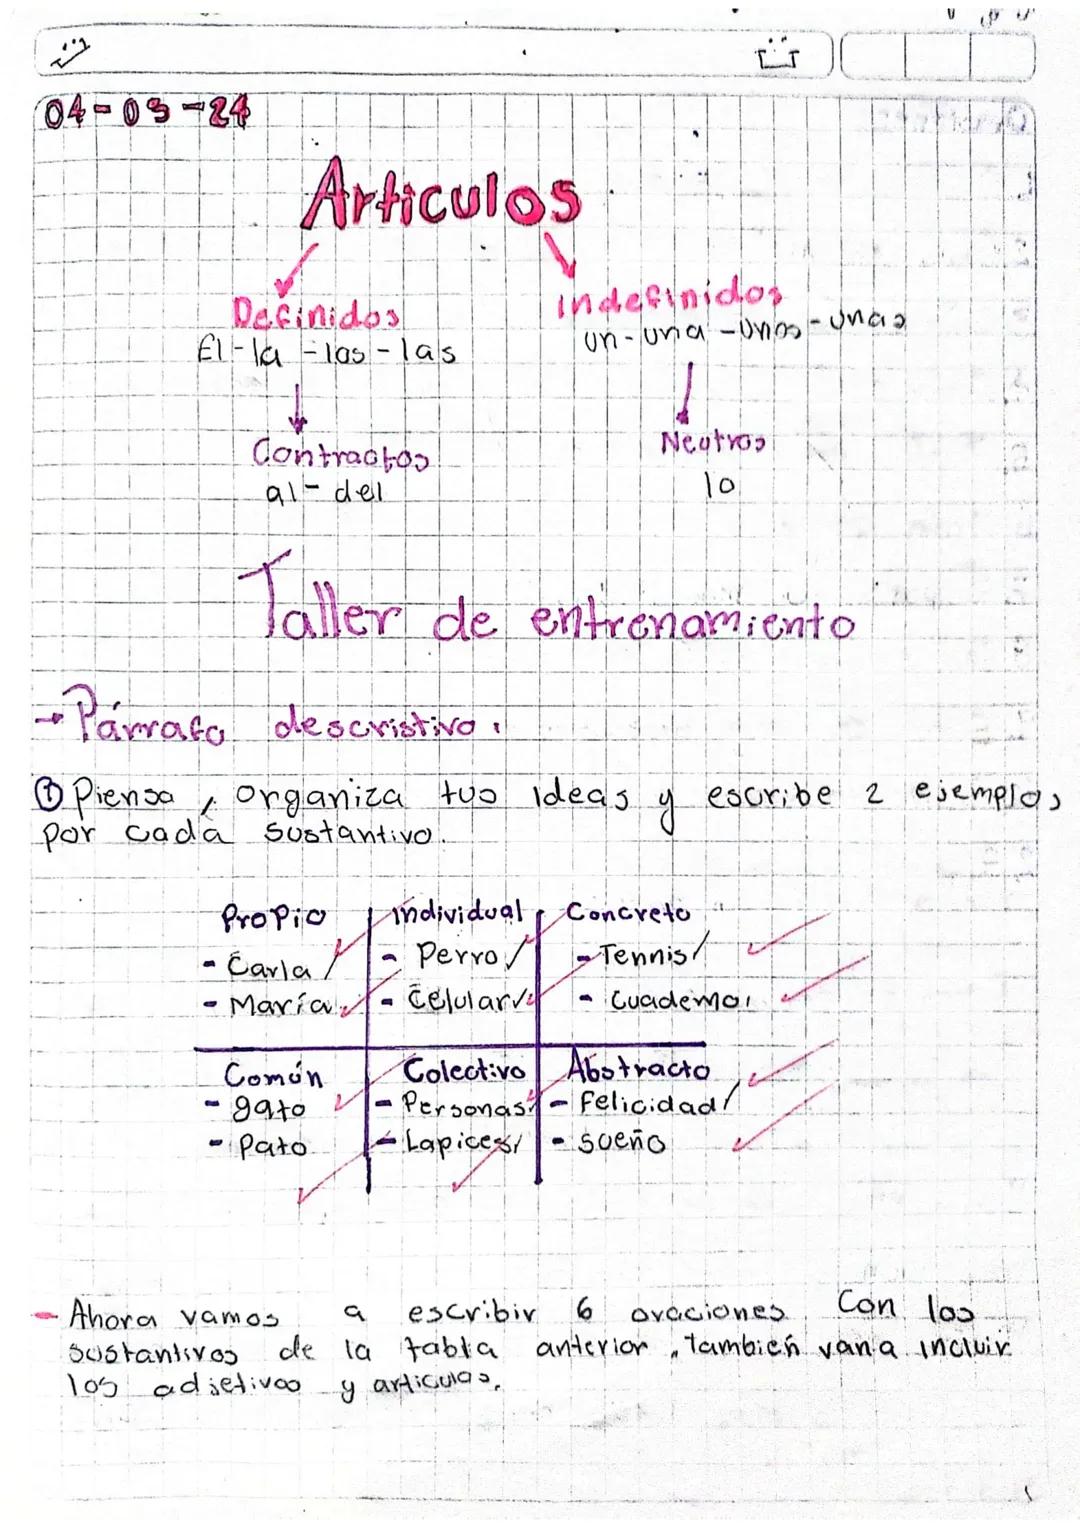 04-03-24
Articulos
Definidos
El-la-los-las
Indefinidos
un-una-unos-unas
Contractos
al-del
Neutros
lo
Taller de entrenamiento
→Párrafo descristivo.
① Piensa, organiza tus ideas y escribe 2 ejemplos
por cada sustantivo.
Propio
- Carla
- María
Individual
- Perro
- Celular
Concreto
- Tennis
- Cuaderno
Común
- gato
- Pato
Colectivo
- Personas
- Lapices
Abstracto
- felicidad
- sueño
- Ahora vamos a escribir 6 oraciones Con los
sustantivos de la tabla anterior, también van a incluir
los adjetivos y articulos.